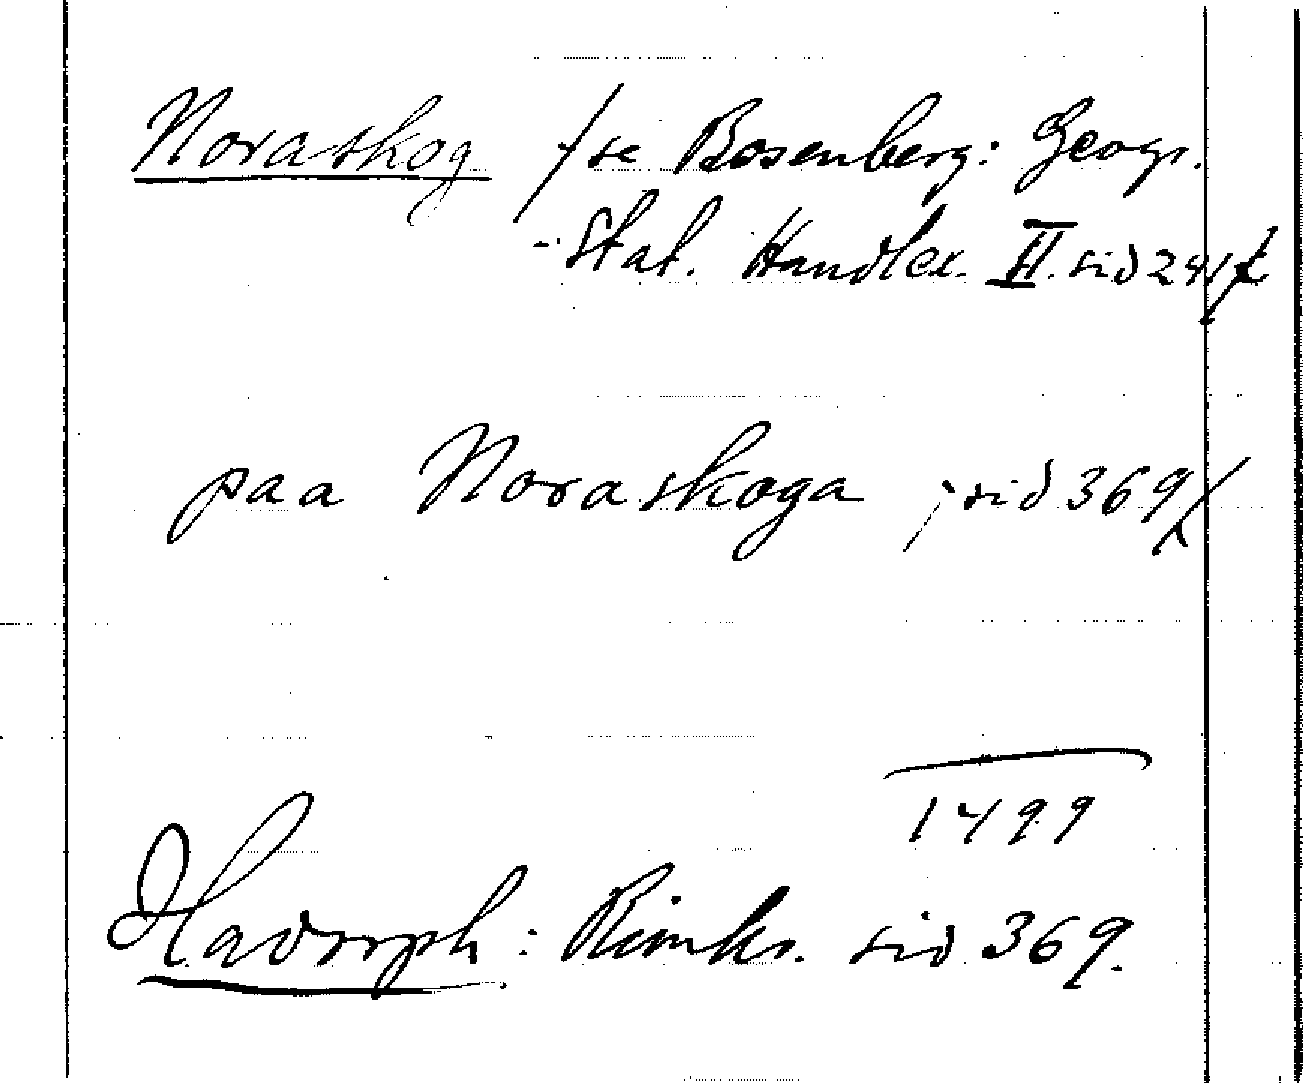 Noraskog /se Rosenberg: Geogr.
-Stat. Handlex. II. sid 241/
paa Noraskoga , sid 369/
1499
Hadorph: Rimkr. sid 369.